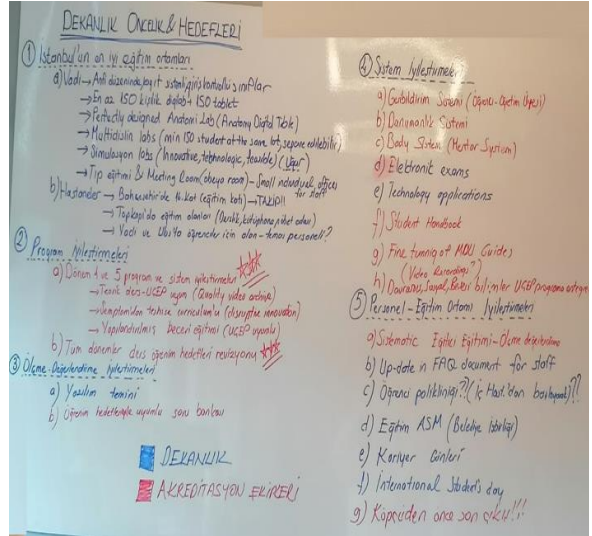 DEKANLIK ÖNCELİK & HEDEFLERİ
① İstanbul'un en iyi eğitim ortamları
a) Vadi → Anfi düzeninde, kayıt sistemli, giriş kontrollü sınıflar
→ En az 150 kişilik digilab + 150 tablet
→ Perfectly designed Anatomi Lab (Anatomy Digital Table)
→ Multidisplin labs (min 150 student at the same lab, separe edilebilir)
→ Simulasyon labs (Innovative, technologic, feasible) (Uğur)
→ Tıp eğitimi & Meeting Room (obeya room) - Small individual offices for staff
b) Hastaneler → Bahçeşehir'de 14. kat (eğitim katı) → TAKİP!!
→ Topkapı'da eğitim alanları (Derslik, kütüphane, nöbet odası)
→ Vadi ve öğrenciler için alan - temas personeli?
② Program İyileştirmeleri
a) Dönem 4 ve 5 program ve sistem iyileştirmeleri
→ Teorik ders-UÇEP uyum (Quality video archive)
→ Semptomdan teshise curriculum'u (disruptive innovation)
→ Yapılandırılmış Beceri eğitimi (UÇEP uyumlu)
b) Tüm dönemler ders öğrenim hedefleri revizyonu
③ Ölçme-Değerlendirme İyileştirmeleri
a) Yazılım temini
b) Öğrenim hedefleriyle uyumlu soru bankası
DEKANLIK
AKREDİTASYON EKİPLERİ
④ Sistem İyileştirmeleri
a) Geribildirim Sistemi (Öğrenci-Öğretim Üyesi)
b) Danışmanlık Sistemi
c) Body Sistem (Mentor System)
d) Elektronic exams
e) Technology applications
f) Student Handbook
g) Fine tunnig of MDU Guides
(Video Recordings?)
h) Davranış, Sosyal, Beşeri bilimler UÇEP programa entegrasyon
⑤ Personel-Eğitim Ortamı İyileştirmeleri
a) Sistematic Eğitici Eğitimi - Ölçme değerlendirme
b) Up-date in FAQ document for staff
c) Öğrenci polikliniği?? (İç Hast.'dan başlayarak)??
d) Eğitim ASM (Belediye İşbirliği)
e) Kariyer Günleri
f) International Student's day
g) Köprüden önce son çıkış!!!